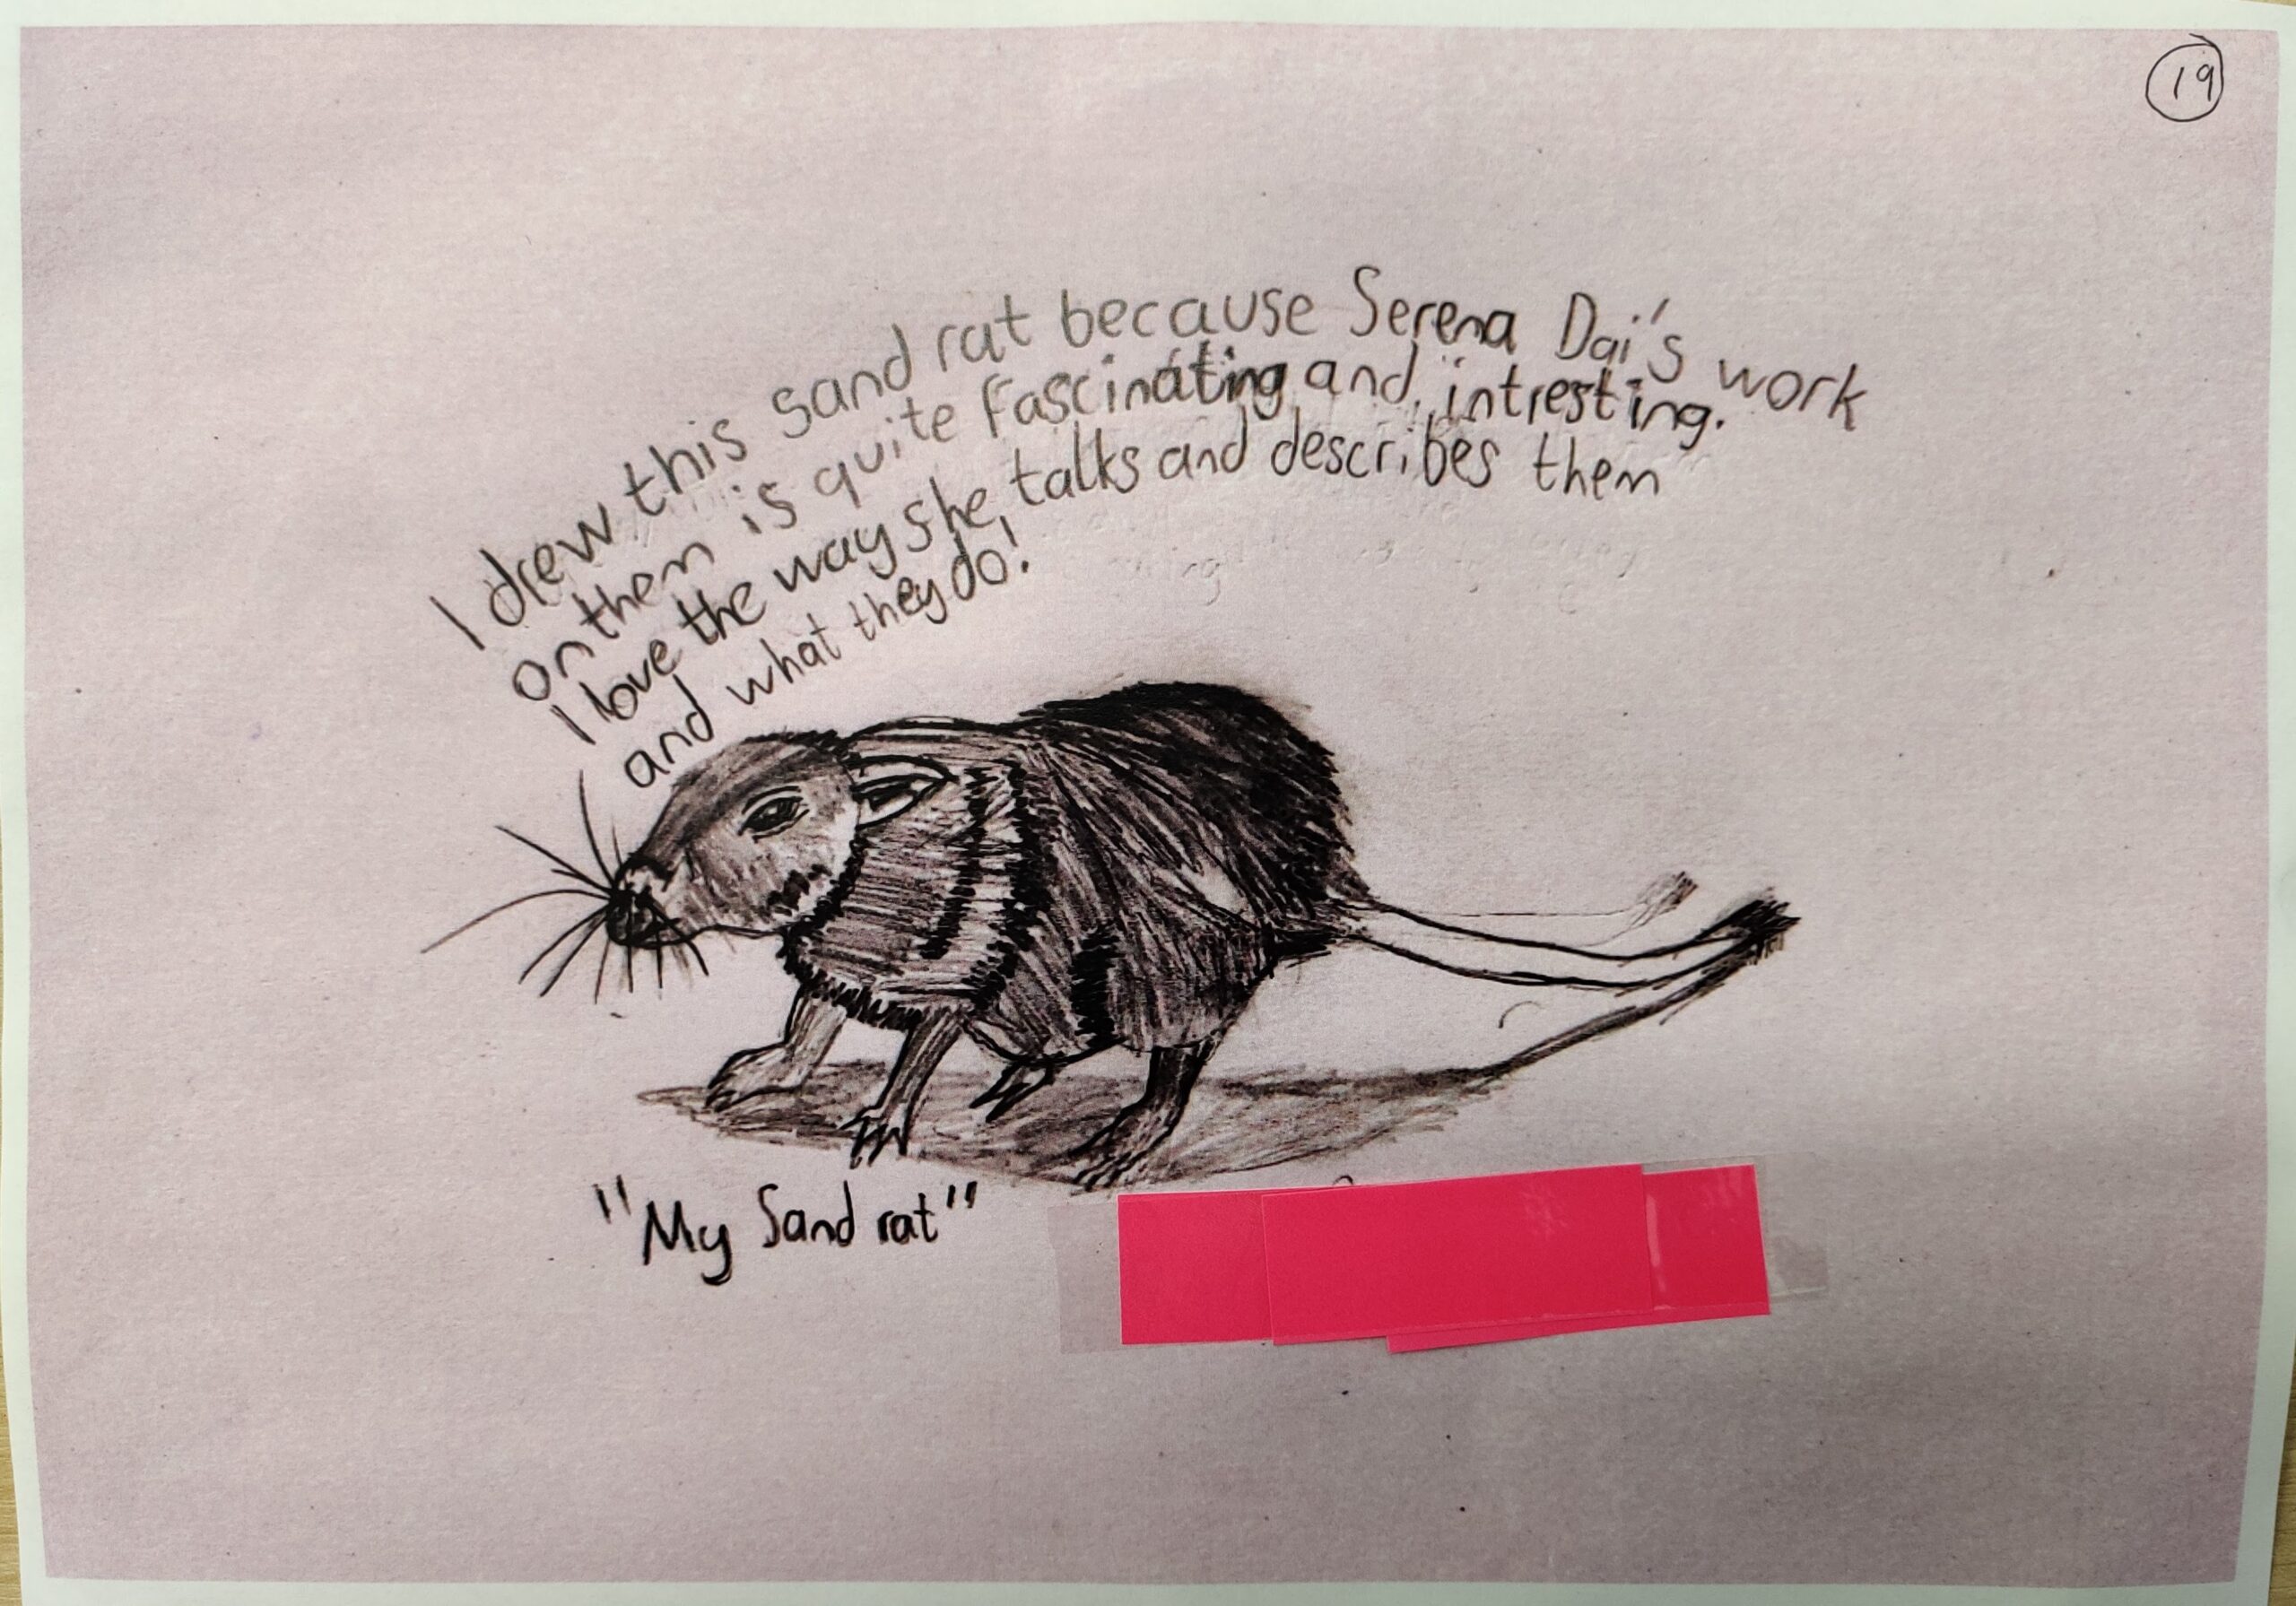 19
I drew this sand rat because Serena Dai's work
on them is quite fascinating and intresting.
I love the way she talks and describes them
and what they do!
"My Sand rat"